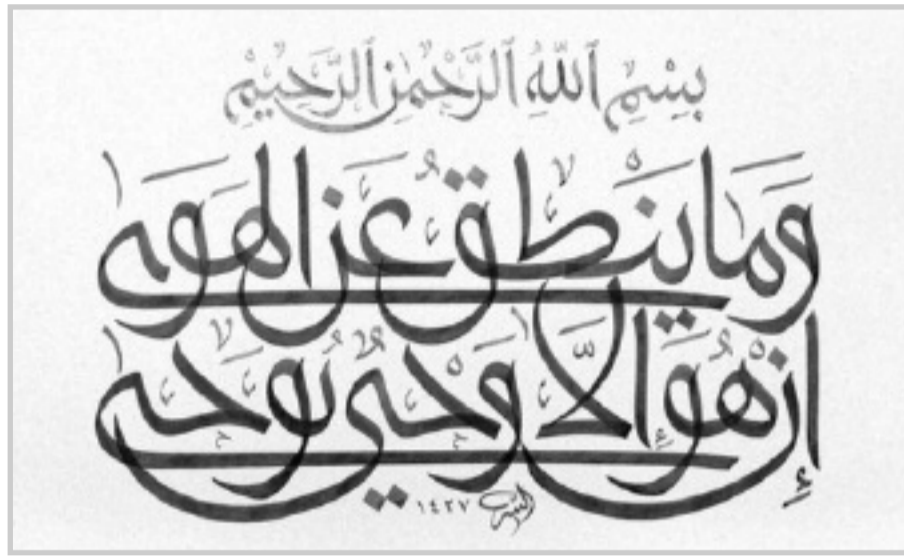 بِسْمِ ٱللَّهِ ٱلرَّحْمٰنِ ٱلرَّحِيْمِ
وَمَا يَنْطِقُ عَنِ الْهَوَى
إِنْ هُوَ إِلَّا وَحْيٌ يُوحَى
١٤٢٧